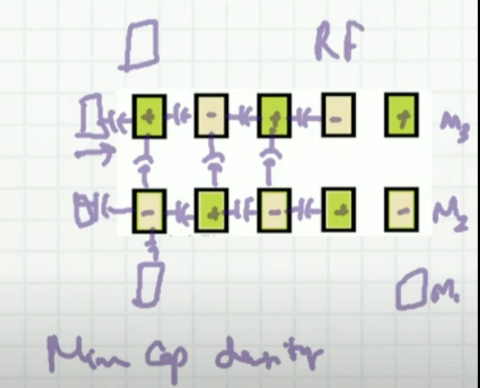 RF
+ - + - + M3
- + - + - M2
M1
Mom Cap density